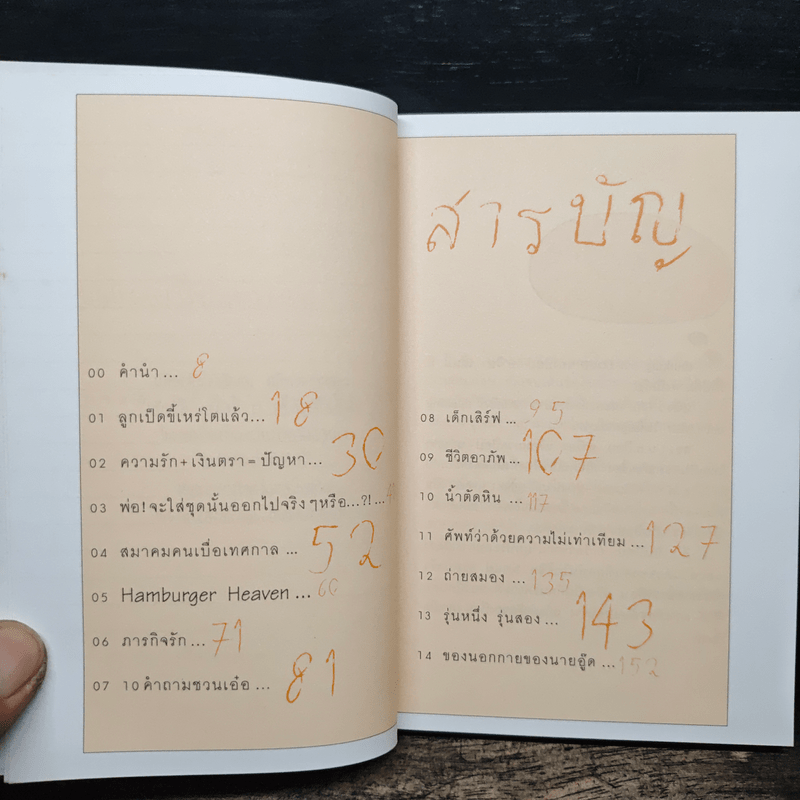 00 คำนำ ... 8
01 ลูกเป็ดขี้เหร่โตแล้ว... 18
02 ความรัก+เงินตรา=ปัญหา... 30
03 พ่อ!จะใส่ชุดนั้นออกไปจริงๆหรือ...?! ...
04 สมาคมคนเบื่อเทศกาล ... 52
05 Hamburger Heaven ... 60
06 ภารกิจรัก ... 71
07 10คำถามชวนเอ๋อ ... 81
สารบัญ
08 เด็กเสิร์ฟ ... 95
09 ชีวิตอาภัพ ... 107
10 น้ำตัดหิน ... 117
11 ศัพท์ว่าด้วยความไม่เท่าเทียม ... 127
12 ถ่ายสมอง ... 135
13 รุ่นหนึ่ง รุ่นสอง ... 143
14 ของนอกกายของนายอู๊ด ... 152